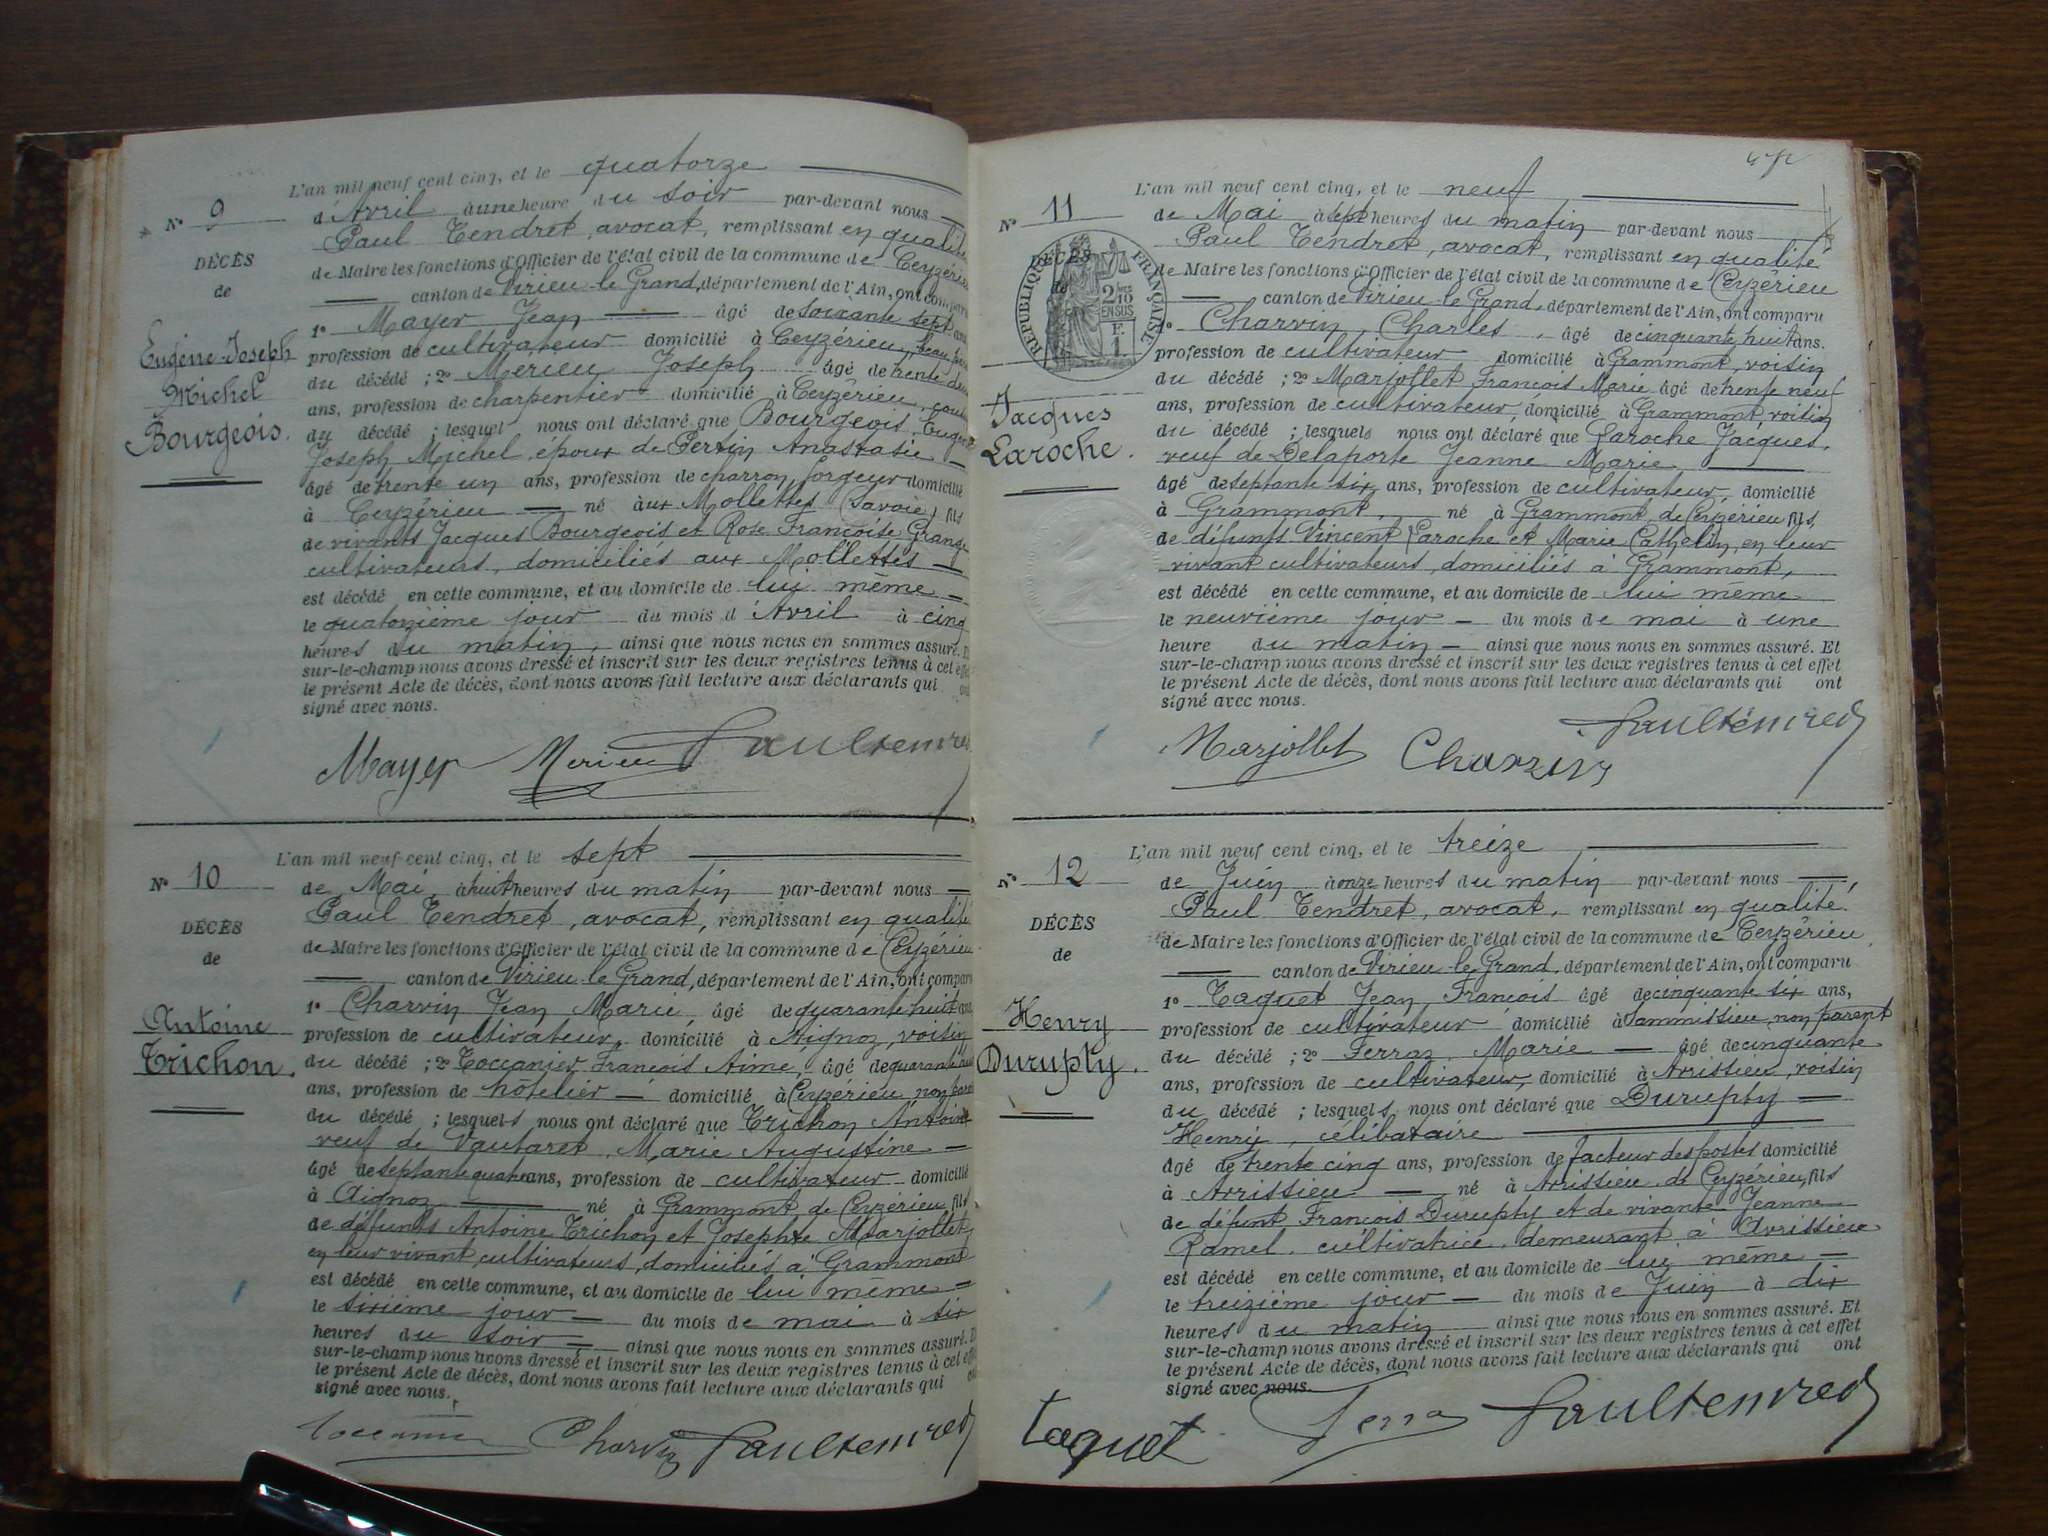 L'an mil neuf cent cinq, et le quatorze
N° 9
d'Avril à une heure du soir par-devant nous
Paul Tendret, avocat, remplissant en qualité
DÉCÈS
de Maire les fonctions d'Officier de l'état civil de la commune de Ceyzérieu
de
canton de Virieu-le-Grand, département de l'Ain, ont comparu
1° Mayer Jean âgé de soixante sept ans
Eugène-Joseph
profession de cultivateur domicilié à Ceyzérieu, beau père
Michel
du décédé ; 2° Merieu Joseph âgé de trente deux
ans, profession de charpentier domicilié à Ceyzérieu,
Bourgeois.
du décédé ; lesquels nous ont déclaré que Bourgeois Eugène
Joseph Michel, époux de Pertin Anastasie
âgé de trente un ans, profession de charron forgeur domicilié
à Ceyzérieu né aux Mollettes (Savoie) fils
de vivants Jacques Bourgeois et Rose Françoise Grange
cultivateurs, domiciliés aux Mollettes
est décédé en cette commune, et au domicile de lui même
le quatorzième jour du mois d'Avril à cinq
heures du matin, ainsi que nous nous en sommes assuré. Et
sur-le-champ nous avons dressé et inscrit sur les deux registres tenus à cet effet
le présent Acte de décès, dont nous avons fait lecture aux déclarants qui ont
signé avec nous.
Mayer Merieu Paul Tendret
L'an mil neuf cent cinq, et le sept
N° 10
de Mai à huit heures du matin par-devant nous
Paul Tendret, avocat, remplissant en qualité
DÉCÈS
de Maire les fonctions d'Officier de l'état civil de la commune de Ceyzérieu
de
canton de Virieu-le-Grand, département de l'Ain, ont comparu
1° Charvin Jean Marie âgé de quarante huit ans
Antoine
profession de cultivateur, domicilié à Aignoz, voisin
Trichon.
du décédé ; 2° Toccanier François Aimé, âgé de quarante
ans, profession de hôtelier domicilié à Ceyzérieu, non parent
du décédé ; lesquels nous ont déclaré que Trichon Antoine
veuf de Vautaret, Marie Augustine
âgé de septante quatre ans, profession de cultivateur domicilié
à Aignoz né à Grammont de Ceyzérieu fils
de défunts Antoine Trichon et Josephte Marjollet
en leur vivant cultivateurs, domiciliés à Grammont
est décédé en cette commune, et au domicile de lui même
le sixième jour du mois de mai à six
heures du soir ainsi que nous nous en sommes assuré. Et
sur-le-champ nous avons dressé et inscrit sur les deux registres tenus à cet effet
le présent Acte de décès, dont nous avons fait lecture aux déclarants qui ont
signé avec nous.
Toccanier Charvin Paul Tendret
L'an mil neuf cent cinq, et le neuf
N° 11
de Mai à sept heures du matin par-devant nous
Paul Tendret, avocat, remplissant en qualité
DÉCÈS
de Maire les fonctions d'Officier de l'état civil de la commune de Ceyzérieu
de
RÉPUBLIQUE FRANÇAISE
2/10 EN SUS
F. 1
canton de Virieu-le-Grand, département de l'Ain, ont comparu
1° Charvin, Charles, âgé de cinquante huit ans.
profession de cultivateur domicilié à Grammont, voisin
du décédé ; 2° Marjollet François Marie âgé de trente neuf
Jacques
ans, profession de cultivateur, domicilié à Grammont, voisin
Laroche.
du décédé ; lesquels nous ont déclaré que Laroche Jacques,
veuf de Delaporte Jeanne Marie
âgé de septante six ans, profession de cultivateur, domicilié
à Grammont, né à Grammont, de Ceyzérieu fils
de défunts Vincent Laroche et Marie Cathelin, en leur
vivant cultivateurs, domiciliés à Grammont,
est décédé en cette commune, et au domicile de lui même
le neuvième jour du mois de mai à une
heure du matin ainsi que nous nous en sommes assuré. Et
sur-le-champ nous avons dressé et inscrit sur les deux registres tenus à cet effet
le présent Acte de décès, dont nous avons fait lecture aux déclarants qui ont
signé avec nous.
Marjollet Charvin Paul Tendret
L'an mil neuf cent cinq, et le treize
N° 12
de Juin à onze heures du matin par-devant nous
Paul Tendret, avocat, remplissant en qualité
DÉCÈS
de Maire les fonctions d'Officier de l'état civil de la commune de Ceyzérieu
de
canton de Virieu-le-Grand, département de l'Ain, ont comparu
1° Taquet Jean François âgé de cinquante six ans,
Henry
profession de cultivateur domicilié à Sammissieu, non parent
Durupty.
du décédé ; 2° Ferraz Marie âgé de cinquante
ans, profession de cultivateur, domicilié à Avrissieu, voisin
du décédé ; lesquels nous ont déclaré que Durupty
Henry, célibataire
âgé de trente cinq ans, profession de facteur des postes domicilié
à Avrissieu né à Avrissieu de Ceyzérieu, fils
de défunt François Durupty et de vivante Jeanne
Ramel, cultivatrice, demeurant à Avrissieu
est décédé en cette commune, et au domicile de lui même
le treizième jour du mois de Juin à dix
heures du matin ainsi que nous nous en sommes assuré. Et
sur-le-champ nous avons dressé et inscrit sur les deux registres tenus à cet effet
le présent Acte de décès, dont nous avons fait lecture aux déclarants qui ont
signé avec nous.
taquet Ferra Paul Tendret